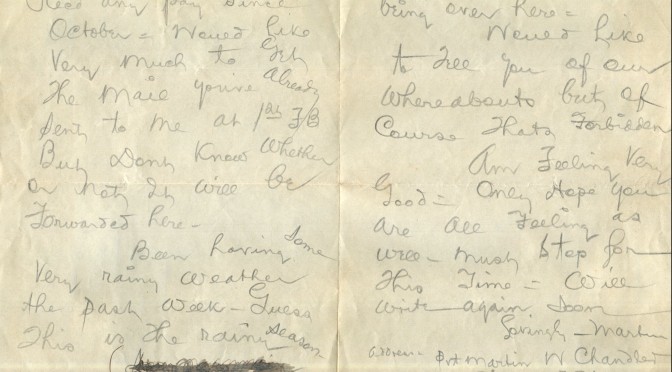 Read any pay since
October = Would Like
Very much to Get
The Mail you've Already
Sent to me at 1st
But Dont Know Whether
or not It will be
Forwarded here -
Been having Some
Very rainy weather
the past week - Guess
This is the rainy Season
being over here =
Would Like
to Tell you of our
Whereabouts but of
Course Thats Forbidden
Am Feeling Very
Good = Only Hope you
are all Feeling as
well - Must Stop for
This Time = Will
write again Soon
Lovingly - Martin
address - Pvt Martin W Chandler